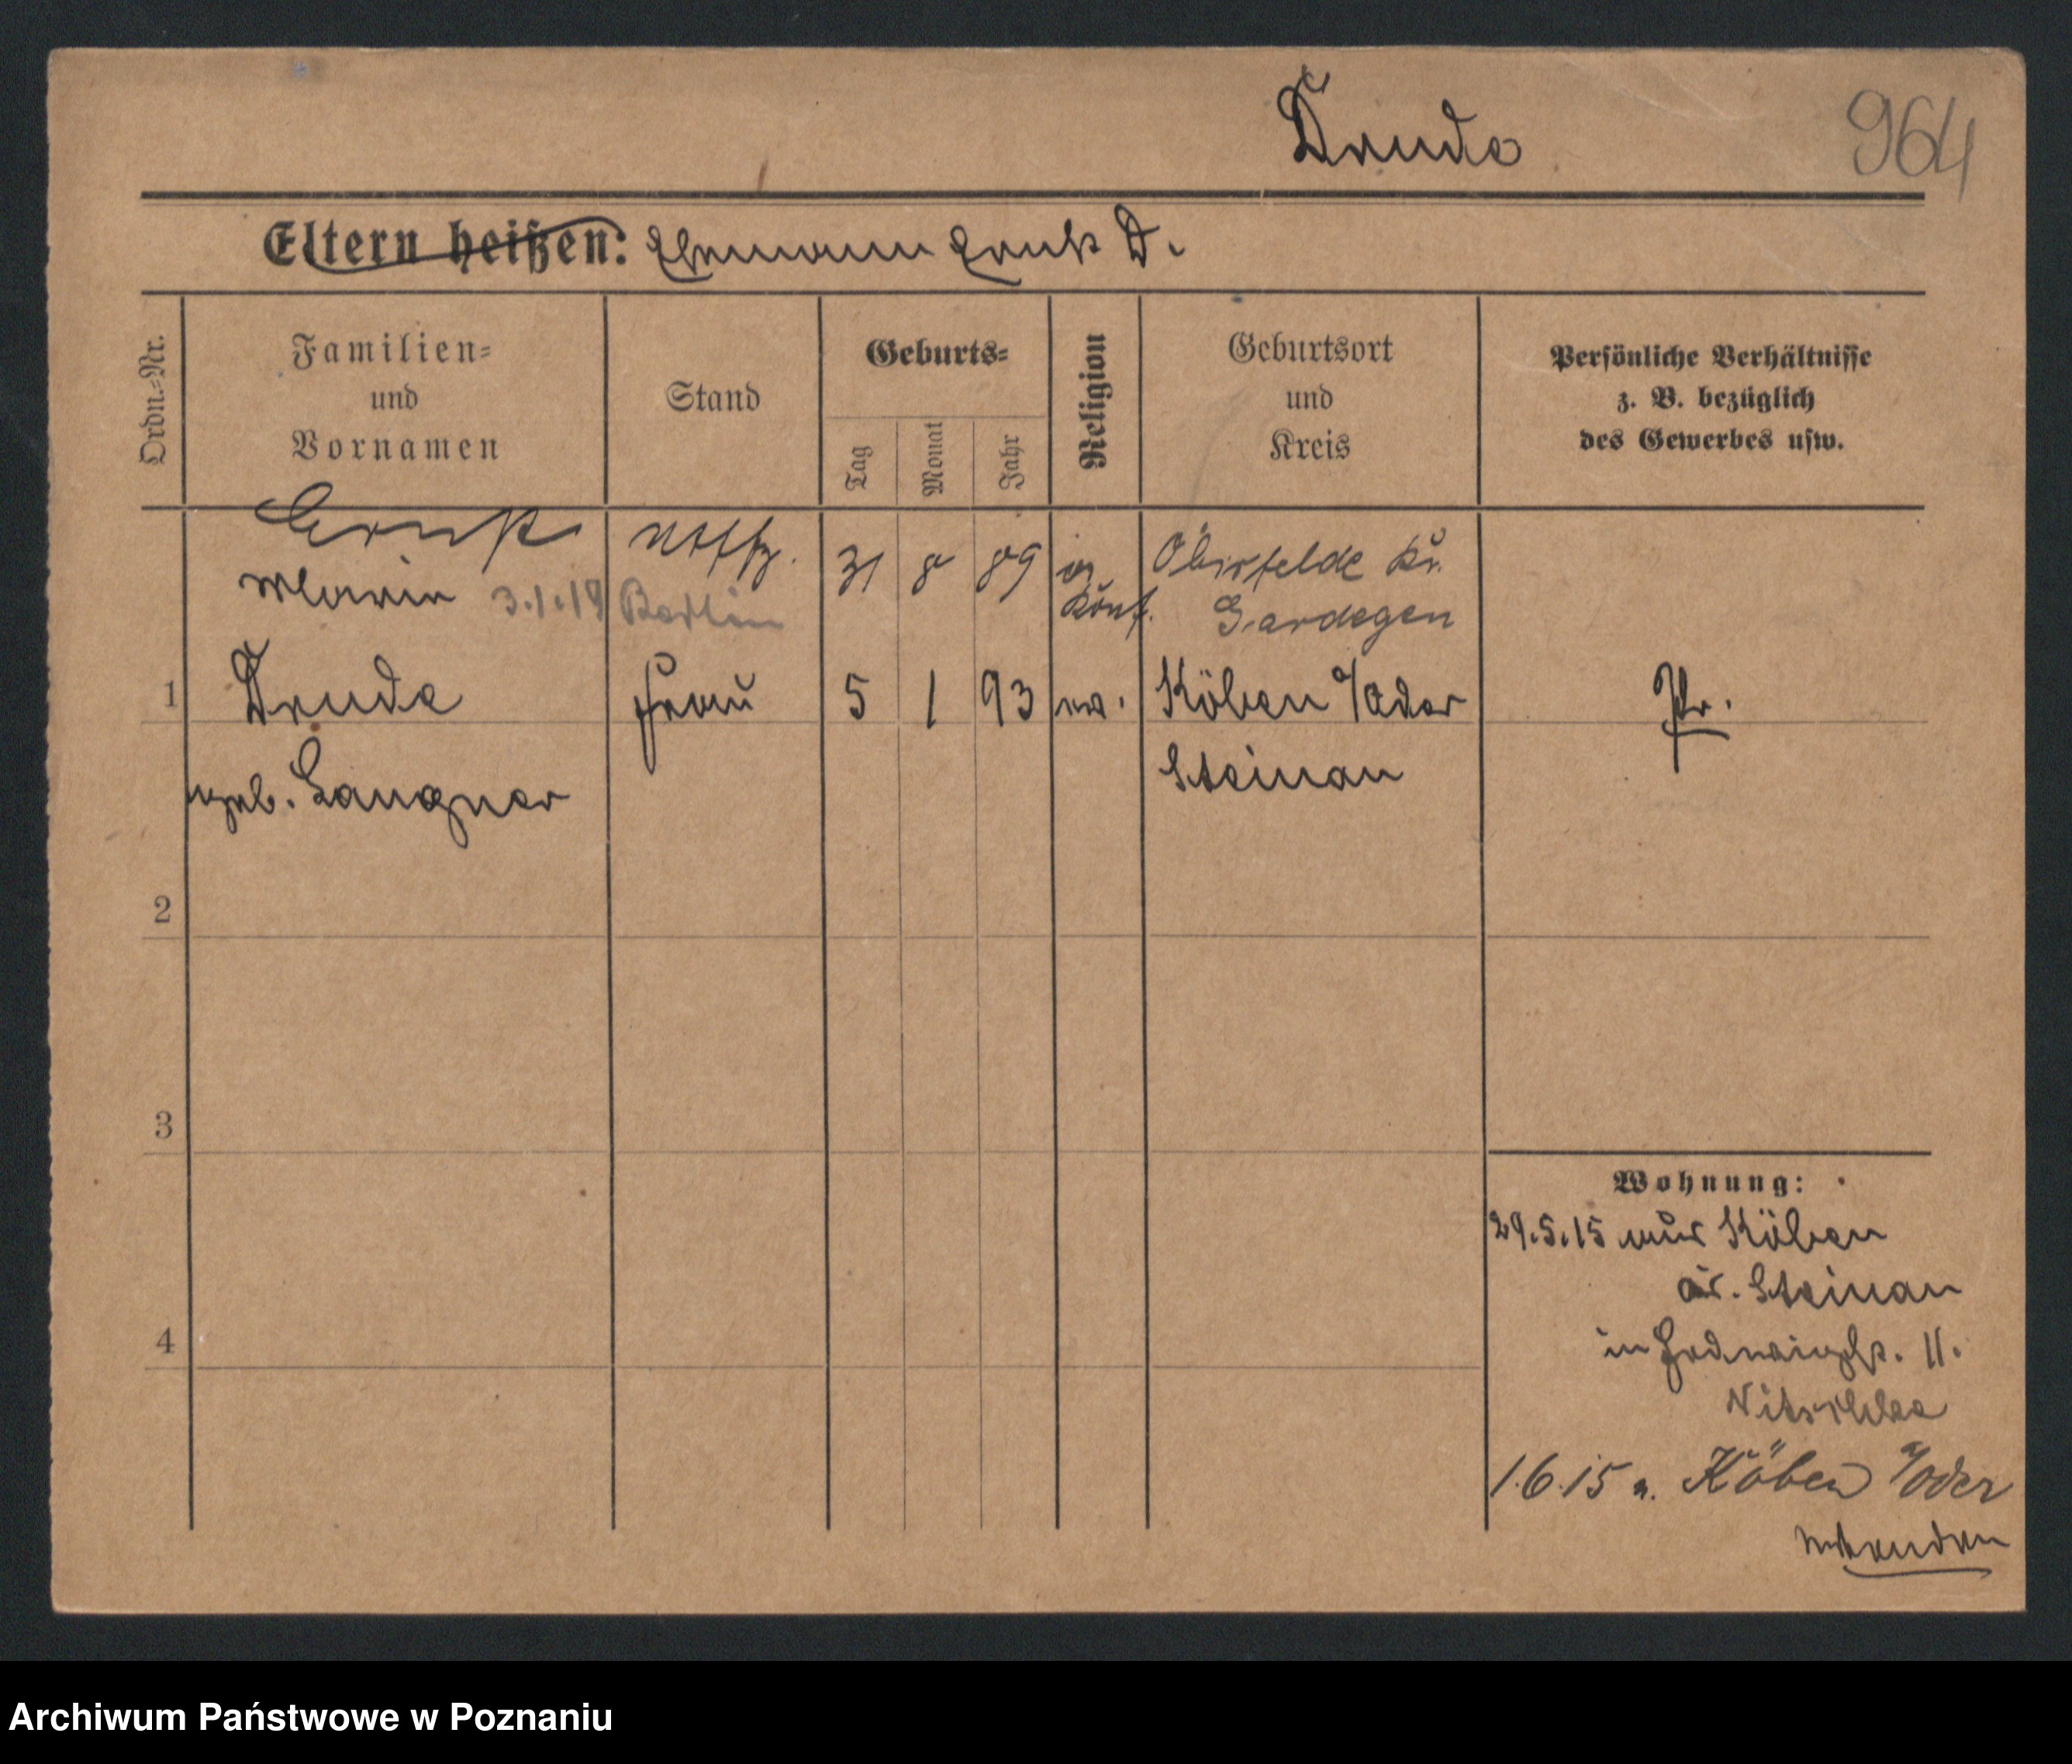 Drude
964
Eltern heißen: Ehemann Ernst D.
Ordn.-Nr.
Familien-
und
Vornamen
Stand
Geburts-
Tag
Monat
Jahr
Religion
Geburtsort
und
Kreis
Persönliche Verhältnisse
z. B. bezüglich
des Gewerbes usw.
Ernst Uffz. 31 8 89
Marie 3.1.19 Berlin
Obisfelde Kr.
Gardegen
1 Drude Frau 5 1 93 ev. Köben a/Oder Pr.
geb. Langner Steinau
2
3
4
Wohnung:
29.5.15 aus Köben
Kr. Steinau
in Hedwigstr. 11.
Nitschke
1.6.15 n. Köben a/Oder
Archiwum Państwowe w Poznaniu